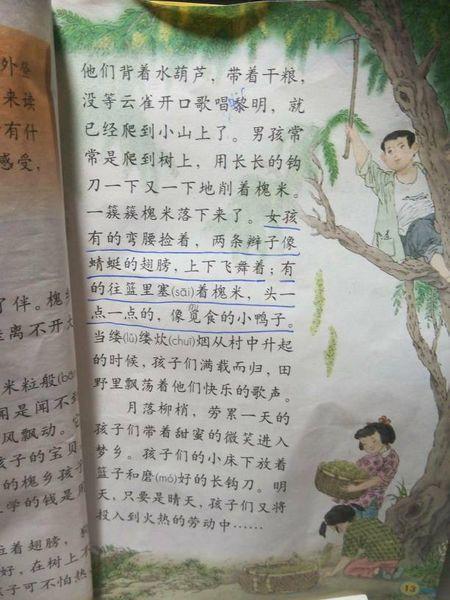 外昼
来读
有什
感受，
了伴。槐
离不开
米粒般(bō
用是闻不到
风飘动。它
孩子的宝贝
的槐乡孩子
学的钱是用
着翅膀，
好，在树上不
孩子可不怕热
他们背着水葫芦，带着干粮，
没等云雀开口歌唱黎明，就
已经爬到小山上了。男孩常
常是爬到树上，用长长的钩
刀一下又一下地削着槐米。
一簇簇槐米落下来了。女孩
有的弯腰捡着，两条辫子像
蜻蜓的翅膀，上下飞舞着；有
的往篮里塞(sāi)着槐米，头一
点一点的，像觅食的小鸭子。
当缕(lǚ)缕炊(chuī)烟从村中升起
的时候，孩子们满载而归，田
野里飘荡着他们快乐的歌声。
月落柳梢，劳累一天的
孩子们带着甜蜜的微笑进入
梦乡。孩子们的小床下放着
篮子和磨(mó)好的长钩刀。明
天，只要是晴天，孩子们又将
投入到火热的劳动中……
13